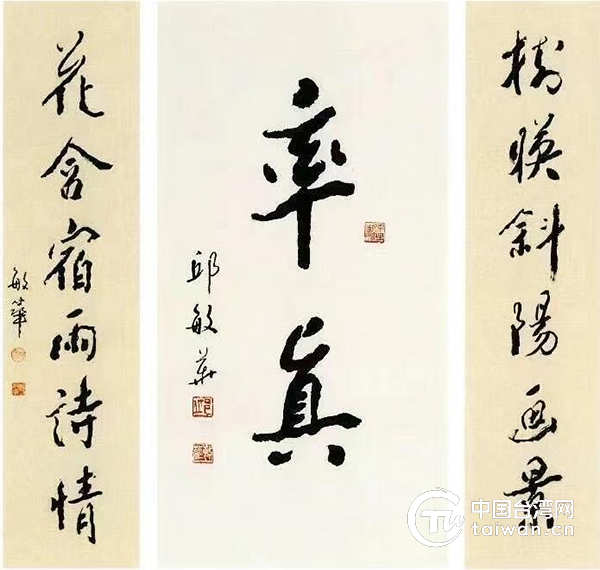 樹暎斜陽画景
率真
邱敏華
花含宿雨詩情
敏華
中国台湾网
taiwan.cn